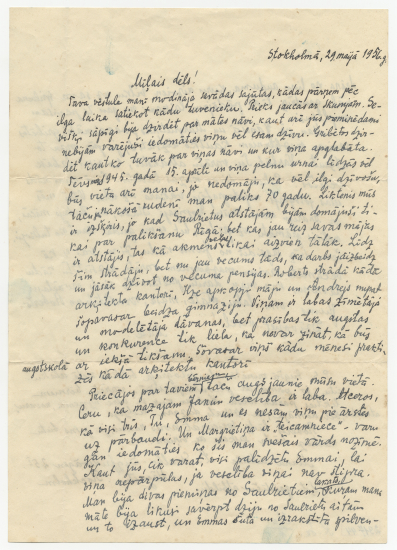 Stokholmā, 29 maijā 1956.g
Mīļais dēls!
Tava vēstule manī modināja savādas sajūtas, kādas pārņem pēc
ilga laika satiekot kādu tuvinieku. Prieks jaucās ar skumjām. Se-
višķi sāpīgi bija dzirdēt par mātes nāvi, kaut arī jūs pieminēdami
nebijām varējuši iedomāties viņu vēl esam dzīvu. Gribētos dzir-
dēt kaut ko tuvāk par viņas nāvi un kur viņa apglabāta.
1945. gada 15. aprīlī un viņa pelnu urnai līdzās vēl
būs vieta arī manai, jo nedomāju, ka vēl ilgi dzīvošu,
taču nākošā rudenī man paliks 70 gadu. Liktenis mūs
ir izšķīris, jo kad Saulrietus atstājām bijām domājuši ti-
kai par palikšanu Rīgā; bet kas jau reiz savas mājas
ir atstājis, tas kā akmens aizvien tālāk. Līdz
šim strādāju, bet nu jau vecums tāds, ka darbs jāizbeidz
un jāsāk dzīvot no vecuma pensijas. Roberts strādā kādā
arhitekta kantorī, Ilze apkopj māju un nupat
šopavasar beidza ģimnāziju. Viņam ir labas zīmētāja
un modelētāja dāvanas, bet prasības tik augstas
un konkurence tik liela, ka nevar zināt, kā būs
augstskolā
ar iekļūšanu. Šovasar viņš kādu mēnesi prakti-
zēs kādā arhitektu kantorī
Priecājos par taviem augšjaunie mūsu vietā.
Ceru, ka mazajam Jānim veselība ir labā.
kā visi trīs, Tu, Emma un es nesam viņu pie ārstes
uz pārbaudi. Un Margrietiņa ir "Teicamniece" - varu
gan iedomāties ko šis man svešais vārds nozīmē.
Kaut jūs, cik varat, visi palīdzētu Emmai, lai
viņa nepārpūlas, ja veselība viņai nav stipra.
Man bija divas pieminiņas no Saulrietiem, kuram mana
māte bija likusi savērpt dziju no Saulrietu aitām
un to izaust, un Emmas šūta un izrakstīta spilven-